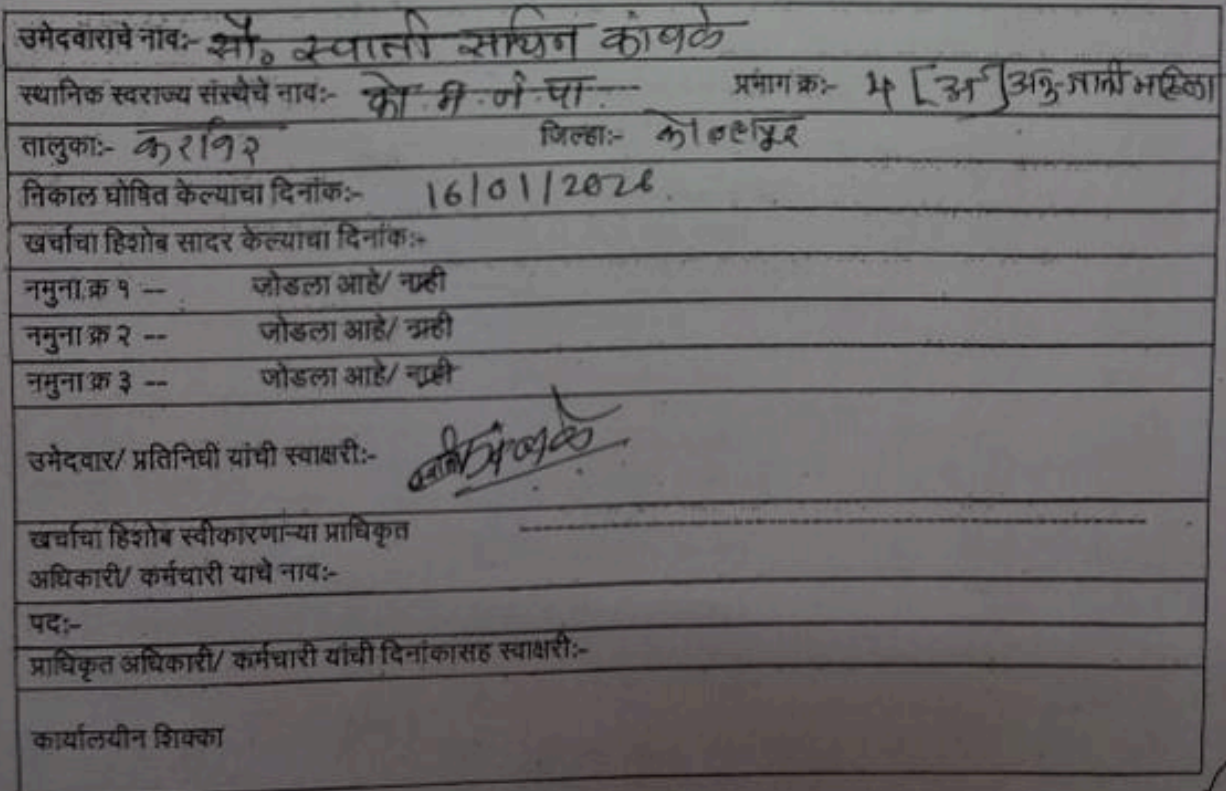 उमेदवाराचे नांवः- सौ. स्वाती सचिन कांबळे
स्थानिक स्वराज्य संस्थेचे नावः- को. म. न. पा. प्रभाग क्रः- ४ [अ] अनु-जाती महिला
तालुकाः- करविर जिल्हाः- कोल्हापूर
निकाल घोषित केल्याचा दिनांकः- 16/01/2026
खर्चाचा हिशोब सादर केल्याचा दिनांकः-
नमुना क्र १ -- जोडला आहे/ नाही
नमुना क्र २ -- जोडला आहे/ नाही
नमुना क्र ३ -- जोडला आहे/ नाही
उमेदवार/ प्रतिनिधी यांची स्वाक्षरीः-
खर्चाचा हिशोब स्वीकारणाऱ्या प्राधिकृत
अधिकारी/ कर्मचारी याचे नावः-
पदः-
प्राधिकृत अधिकारी/ कर्मचारी यांची दिनांकासह स्वाक्षरीः-
कार्यालयीन शिक्का